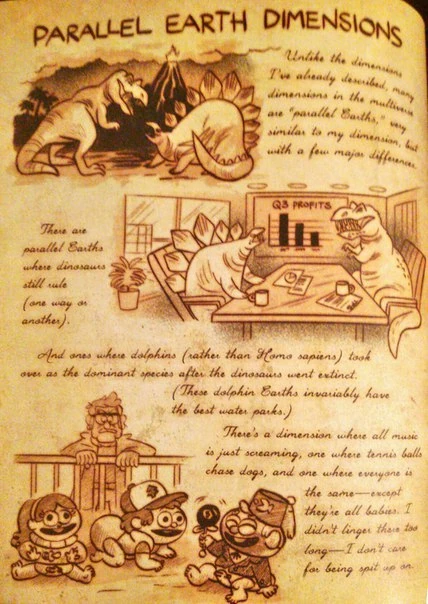 PARALLEL EARTH DIMENSIONS
Unlike the dimensions
I've already described, many
dimensions in the multiverse
are "parallel Earths," very
similar to my dimension, but
with a few major differences.
Q3 PROFITS
There are
parallel Earths
where dinosaurs
still rule
(one way or
another).
And ones where dolphins (rather than Homo sapiens) took
over as the dominant species after the dinosaurs went extinct.
(These dolphin Earths invariably have
the best water parks.)
There's a dimension where all music
is just screaming, one where tennis balls
chase dogs, and one where everyone is
the same—except
they're all babies. I
didn't linger there too
long—I don't care
for being spit up on.
8